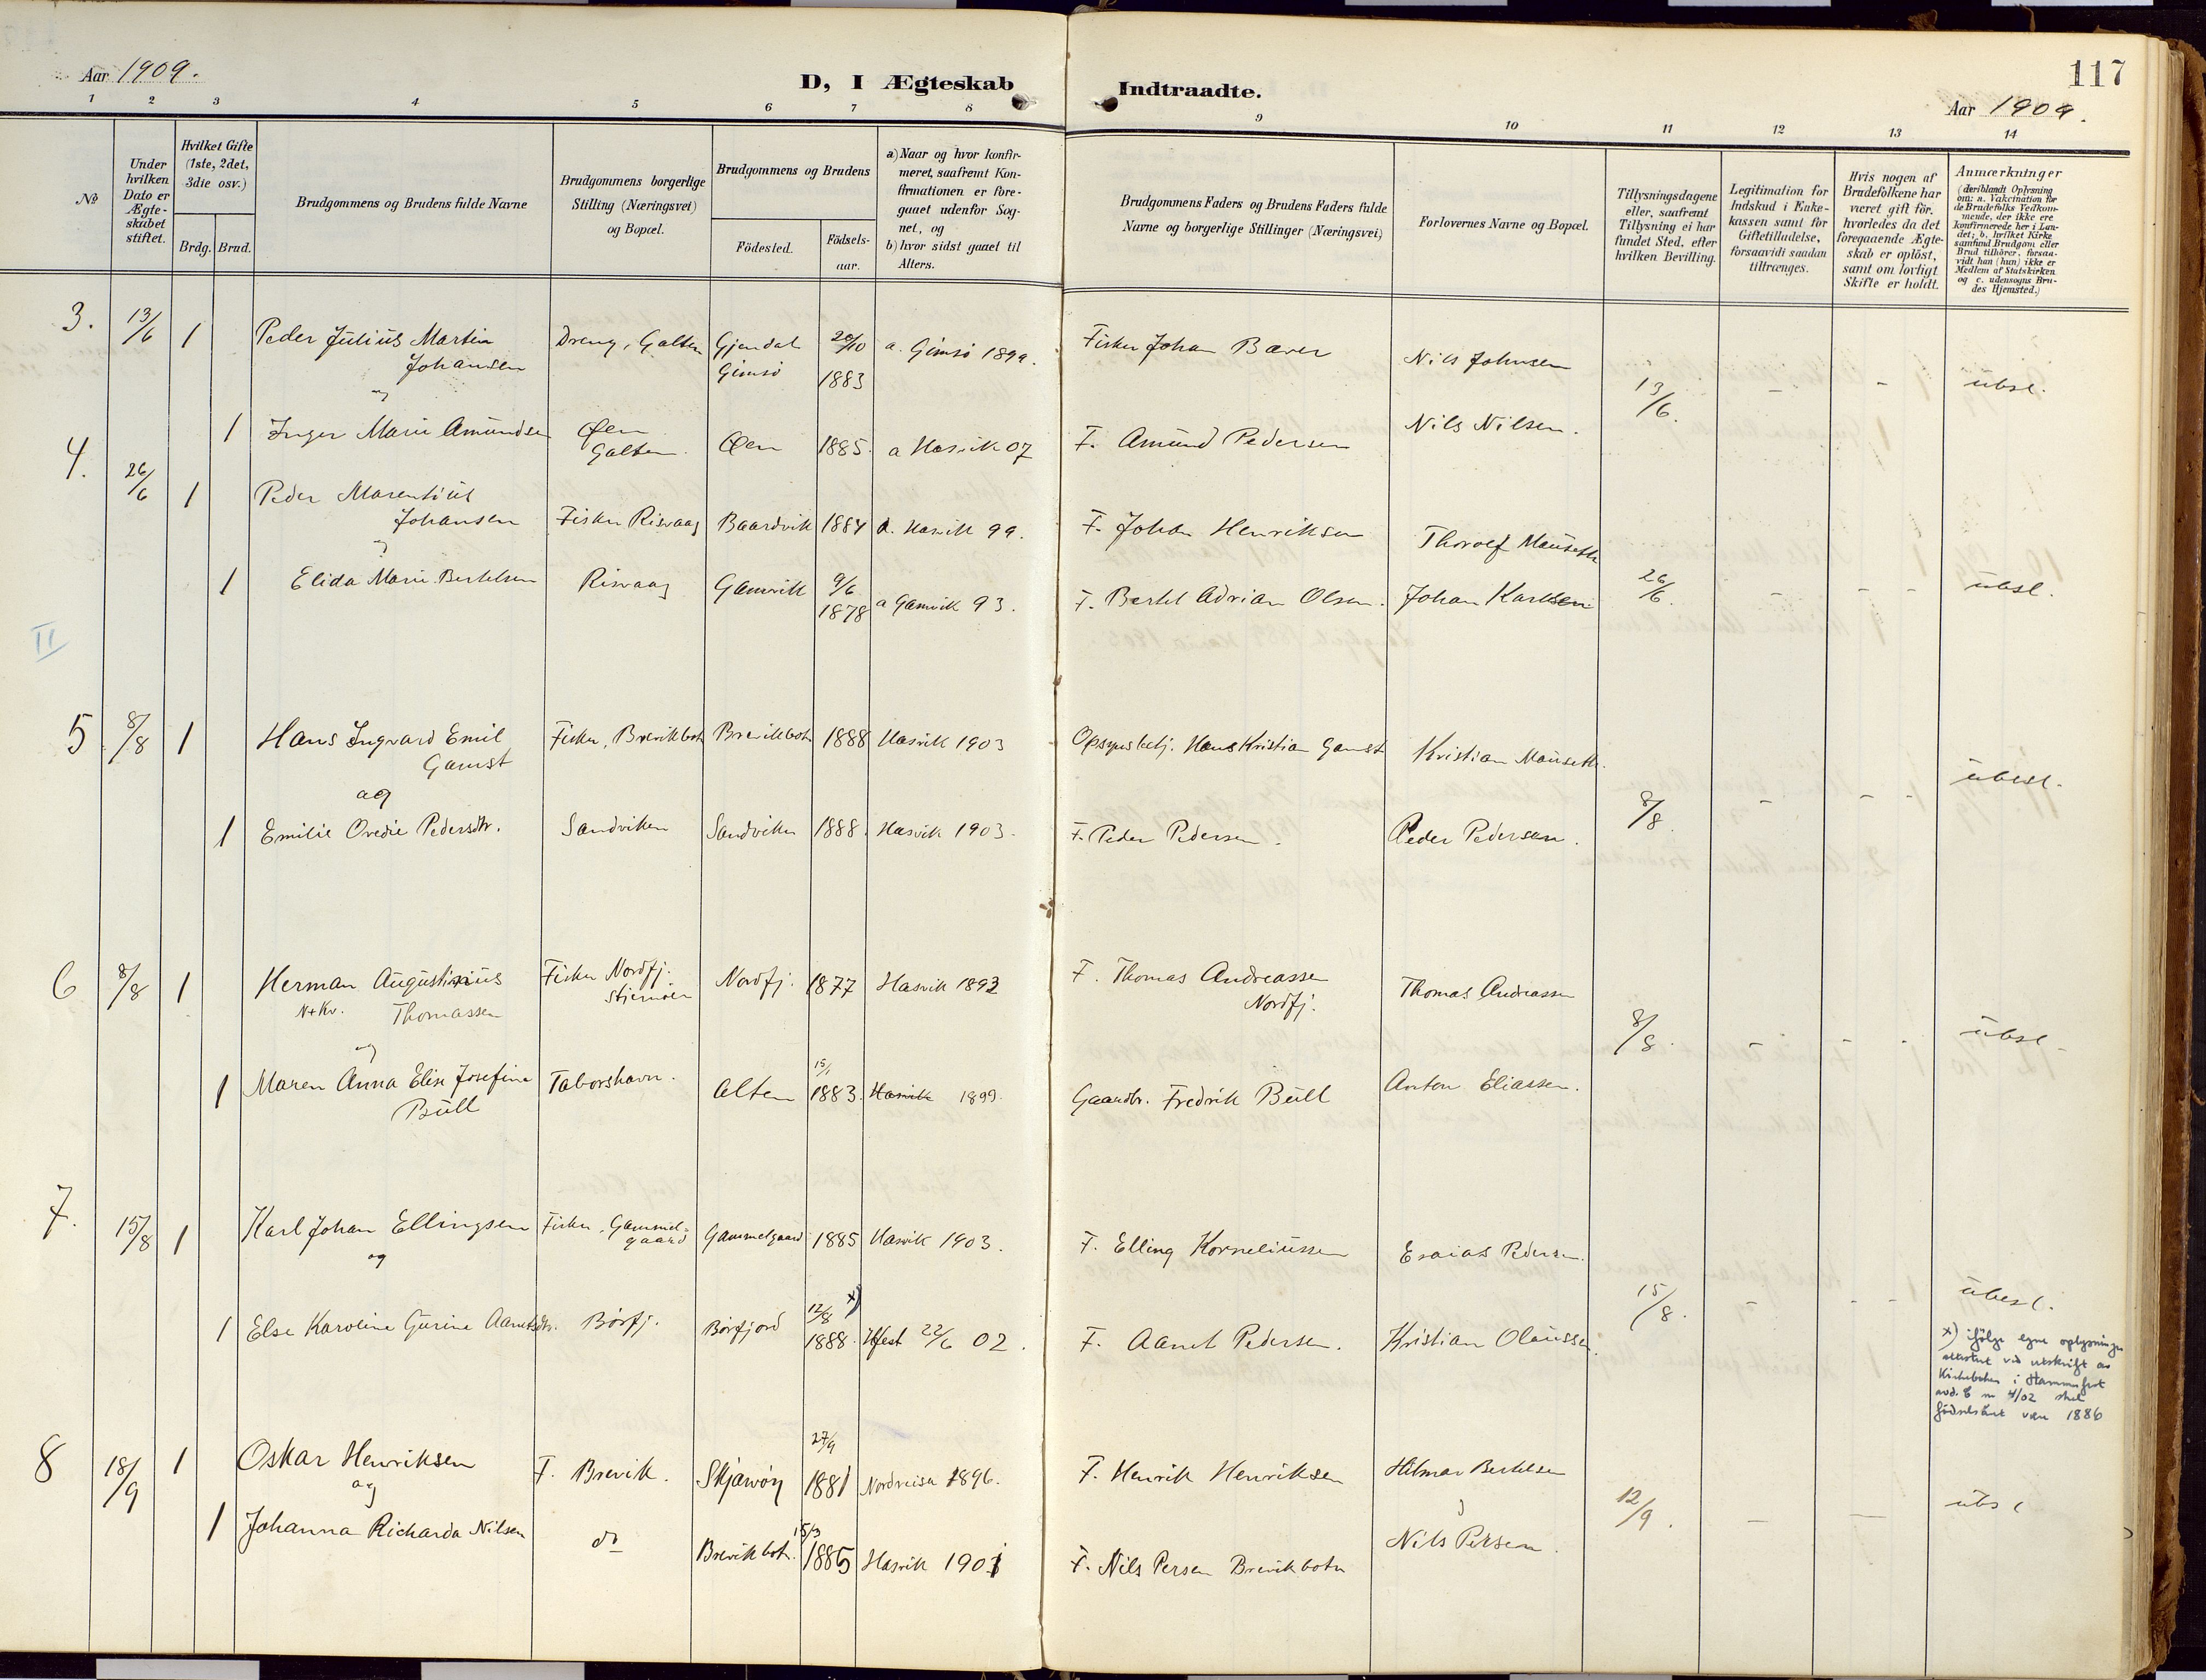 Aar 1909.
D, I Ægteskab
Indtraadte.
117
Aar 1909.
1 2 3 4 5 6 7 8 9 10 11 12 13 14
No
Under
hvilken
Dato er
Ægte-
skabet
stiftet.
Hvilket Gifte
(1ste, 2det,
3die osv.)
Brdg. Brud.
Brudgommens og Brudens fulde Navne
Brudgommens borgerlige
Stilling (Næringsvei)
og Bopæl.
Brudgommens og Brudens
Födested.
Födsels-
aar.
a) Naar og hvor konfir-
meret, saafremt Kon-
firmationen er fore-
gaaet udenfor Sog-
net, og
b) hvor sidst gaaet til
Alters.
Brudgommens Faders og Brudens Faders fulde
Navne og borgerlige Stillinger (Næringsvei)
Forlovernes Navne og Bopæl.
Tillysningsdagene
eller, saafremt
Tillysning ei har
fundet Sted, efter
hvilken Bevilling.
Legitimation for
Indskud i Enke-
kassen samt for
Giftetilladelse,
forsaavidt saadan
tiltrænges.
Hvis nogen af
Brudefolkene har
været gift för,
hvorledes da det
foregaaende Ægte-
skab er oplöst,
samt om lovligt
Skifte er holdt.
Anmærkninger
(deriblandt Oplysning
om: a. Vakcination for
de Brudefolks Vedkom-
mende, der ikke ere
konfirmerede her i Lan-
det; b. hvilket Kirke
samfund Brudgom eller
Brud tilhörer, forsaa-
vidt han (hun) ikke er
Medlem af Statskirken
og c. udensogns Bru-
des Hjemsted.)
3. 13/6 1 Peder Julius Martin Dreng, Galten Gjendal 20/10 a. Gimsö 1899. Fisker Johan Bæver Nils Johnsen
Johansen Gimsö 1883 13/6. - - übsl.
og
1 Inger Marie Amundsen Øen Øen 1885. a Hasvik 07 F. Amund Pedersen Nils Nilsen.
Galten.
4. 26/6 1 Peder Marentius
Johansen Fisker Risvaag Baardvik 1884 a. Hasvik 99. F. Johan Henriksen Thorolf Mauseth
og
1 Elida Marie Bertelsen Risvaag Gamvik 9/6 1878 a Gamvik 93. F. Bertel Adrian Olsen. Johan Karlsen 26/6. - - - übsl.
II
5 8/8 1 Hans Ingvard Emil Fisker, Brevikbotn Brevikbotn 1888 Hasvik 1903 Opsynsbetj. Hans Kristian Gamst Kristian Mauseth.
Gamst
og 8/8. - - - übesl.
1 Emilie Ovedie Pedersdtr. Sandviken Sandviken 1888. Hasvik 1903. F. Peder Pedersen. Peder Pedersen.
6 8/8 1 Herman Augustinius Fisker Nordfj. Nordfj. 1877 Hasvik 1892 F. Thomas Andreassen Thomas Andreassen
N+Kv. Thomassen Stjernöen Nordfj.
og 8/8. - - - übsl.
1 Maren Anna Elise Josefine Taborshavn. Alten 15/1 1883. Hasvik 1899. Gaardbr. Fredrik Büll Anton Eliassen.
Büll
7. 15/8 1 Karl Johan Ellingsen Fisker, Gammel- Gammelgaard 1885 Hasvik 1903. F. Elling Korneliussen Esaias Pedersen.
og gaard
15/8. - - - übesl.
1 Else Karoline Gurine Aamtsdtr. Börfj. Börfjord 12/8 x) 1888. Hfest 22/6 02. F. Aamt Pedersen. Kristian Olaussen.
x) ifölge egne oplysninger
attestert ved utskrift av
Kirkeboken i Hammerfest
avd. C nr 4/02 skal
födselsåret være 1886
8 18/9 1 Oskar Henriksen F. Brevik. Skjærvöy 27/9 1881 Nordreisa 1896. F. Henrik Henriksen Hilmar Bertelsen
og 12/9. - - übsl
1 Johanna Richarda Nilsen do Brevikbotn. 15/3 1885 Hasvik 1901 F. Nils Persen Brevikbotn Nils Persen.